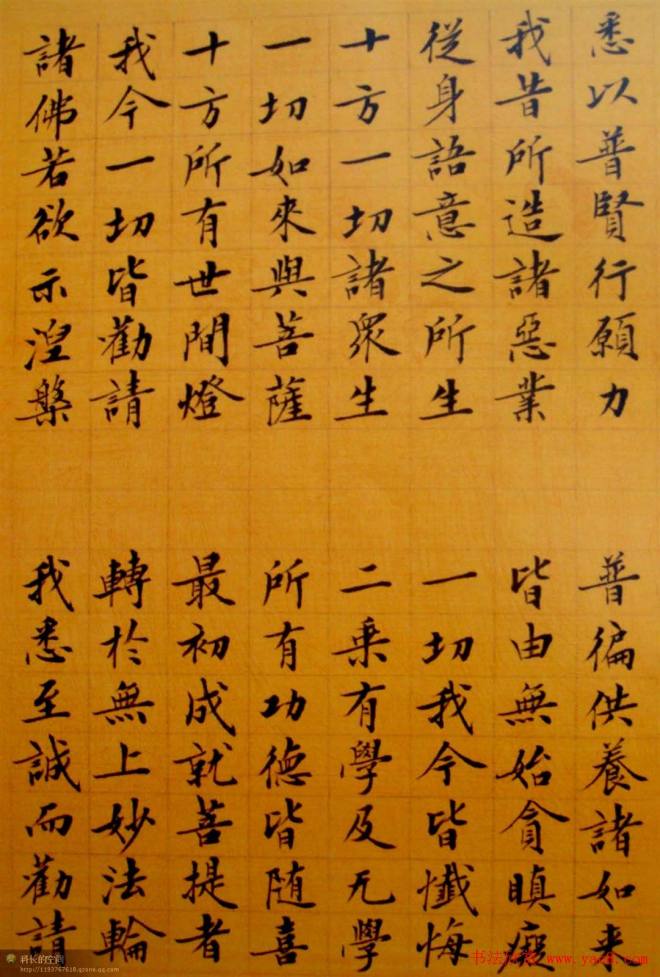 悉以普賢行願力　普徧供養諸如来
我昔所造諸惡業　皆由無始貪瞋癡
從身語意之所生　一切我今皆懺悔
十方一切諸衆生　二乗有學及无學
一切如來與菩薩　所有功德皆随喜
十方所有世間燈　最初成就菩提者
我今一切皆勸請　轉於無上妙法輪
諸佛若欲示涅槃　我悉至誠而勸請
科长的空间
http://1193767618.qzone.qq.com